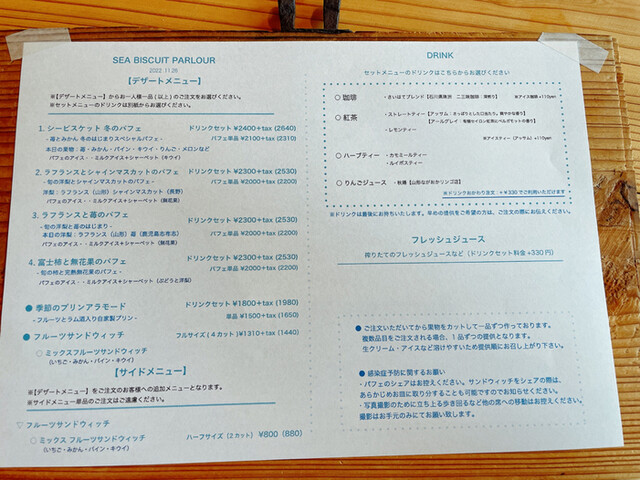 SEA BISCUIT PARLOUR
2022.11.26
【デザートメニュー】
※【デザートメニュー】からお一人様一品(以上)のご注文をお選びください。
※セットメニューのドリンクは別紙からお選びください。
1. シービスケット 冬のパフェ ドリンクセット ¥2400+tax (2640)
- 苺とみかん 冬のはじまりスペシャルパフェ - パフェ単品 ¥2100+tax (2310)
本日の果物:苺・みかん・パイン・キウイ・りんご・メロンなど
パフェのアイス・・ミルクアイス+シャーベット(キウイ)
2. ラフランスとシャインマスカットのパフェ ドリンクセット ¥2300+tax (2530)
- 旬の洋梨とシャインマスカットのパフェ - パフェ単品 ¥2000+tax (2200)
洋梨:ラフランス(山形)シャインマスカット(長野)
パフェのアイス・・ミルクアイス+シャーベット(無花果)
3. ラフランスと苺のパフェ ドリンクセット ¥2300+tax (2530)
- 旬の洋梨と苺のはじまり - パフェ単品 ¥2000+tax (2200)
本日の洋梨:ラフランス(山形)苺(鹿児島志布志)
パフェのアイス・・ミルクアイス+シャーベット(無花果)
4. 富士柿と無花果のパフェ ドリンクセット ¥2300+tax (2530)
- 旬の柿と完熟無花果のパフェ - パフェ単品 ¥2000+tax (2200)
パフェのアイス・・ミルクアイス+シャーベット(ぶどうと洋梨)
● 季節のプリンアラモード ドリンクセット ¥1800+tax (1980)
- フルーツとラム酒入り自家製プリン - 単品 ¥1500+tax (1650)
● フルーツサンドウィッチ フルサイズ(4カット)¥1310+tax (1440)
○ ミックスフルーツサンドウィッチ
(いちご・みかん・パイン・キウイ)
【サイドメニュー】
※【デザートメニュー】をご注文のお客様への追加メニューとなります。
※サイドメニュー単品のご注文はご遠慮ください。
▽ フルーツサンドウィッチ
○ ミックス フルーツサンドウィッチ ハーフサイズ(2カット)¥800 (880)
(いちご・みかん・パイン・キウイ)
DRINK
セットメニューのドリンクはこちらからお選びください
○ 珈琲 ・さいはてブレンド【石川県珠洲 二三味珈琲:深煎り】 ※アイス珈琲 +110yen
○ 紅茶 ・ストレートティー【アッサム:さっぱりとした口当たり。爽やかな香り】
【アールグレイ:有機セイロン紅茶にベルガモットの香り】
・レモンティー
※アイスティー(アッサム)+110yen
○ ハーブティー ・カモミールティー
・ルイボスティー
○ りんごジュース ・秋陽【山形ながおかりんご店】
※ドリンクおかわり注文 +¥330でご利用いただけます
※ドリンクは最後にお持ちいたします。早めの提供をご希望の方は、ご注文の際にお伝えください。
フレッシュジュース
搾りたてのフレッシュジュースなど(ドリンクセット料金+330円)
● ご注文いただいてから果物をカットして一品ずつ作っております。
複数品目をご注文される場合、1品ずつの提供となります。
生クリーム・アイスなど溶けやすいため提供順にお召し上がり下さい。
● 感染症予防に関するお願い
・パフェのシェアはお控えください。サンドウィッチをシェアの際は、
あらかじめお皿に取り分けることも可能ですのでお知らせください。
・写真撮影のために立ち上る歩き回るなど他の席への移動はお控えください。
撮影はお手元のみにてお願い致します。